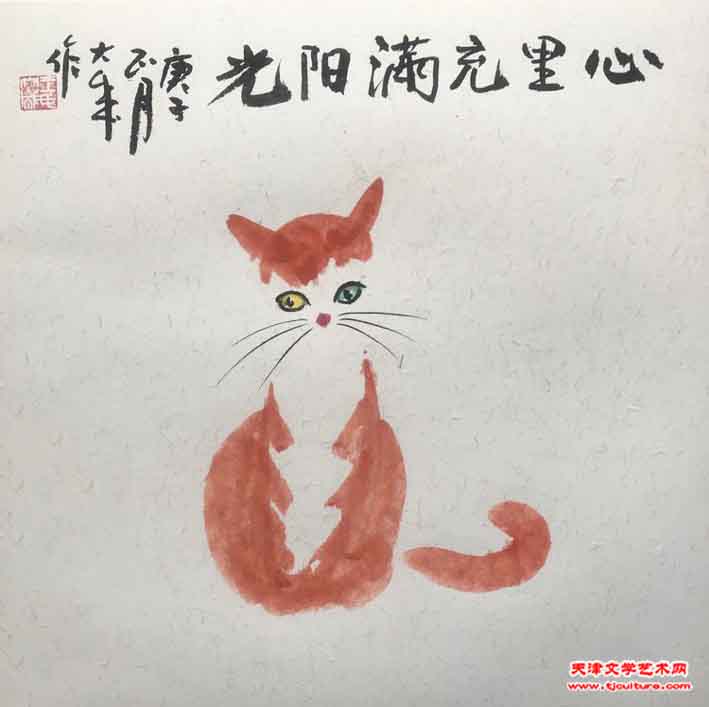 心里充满阳光
庚子
正月
大年
作
天津文学艺术网
www.tjculture.com